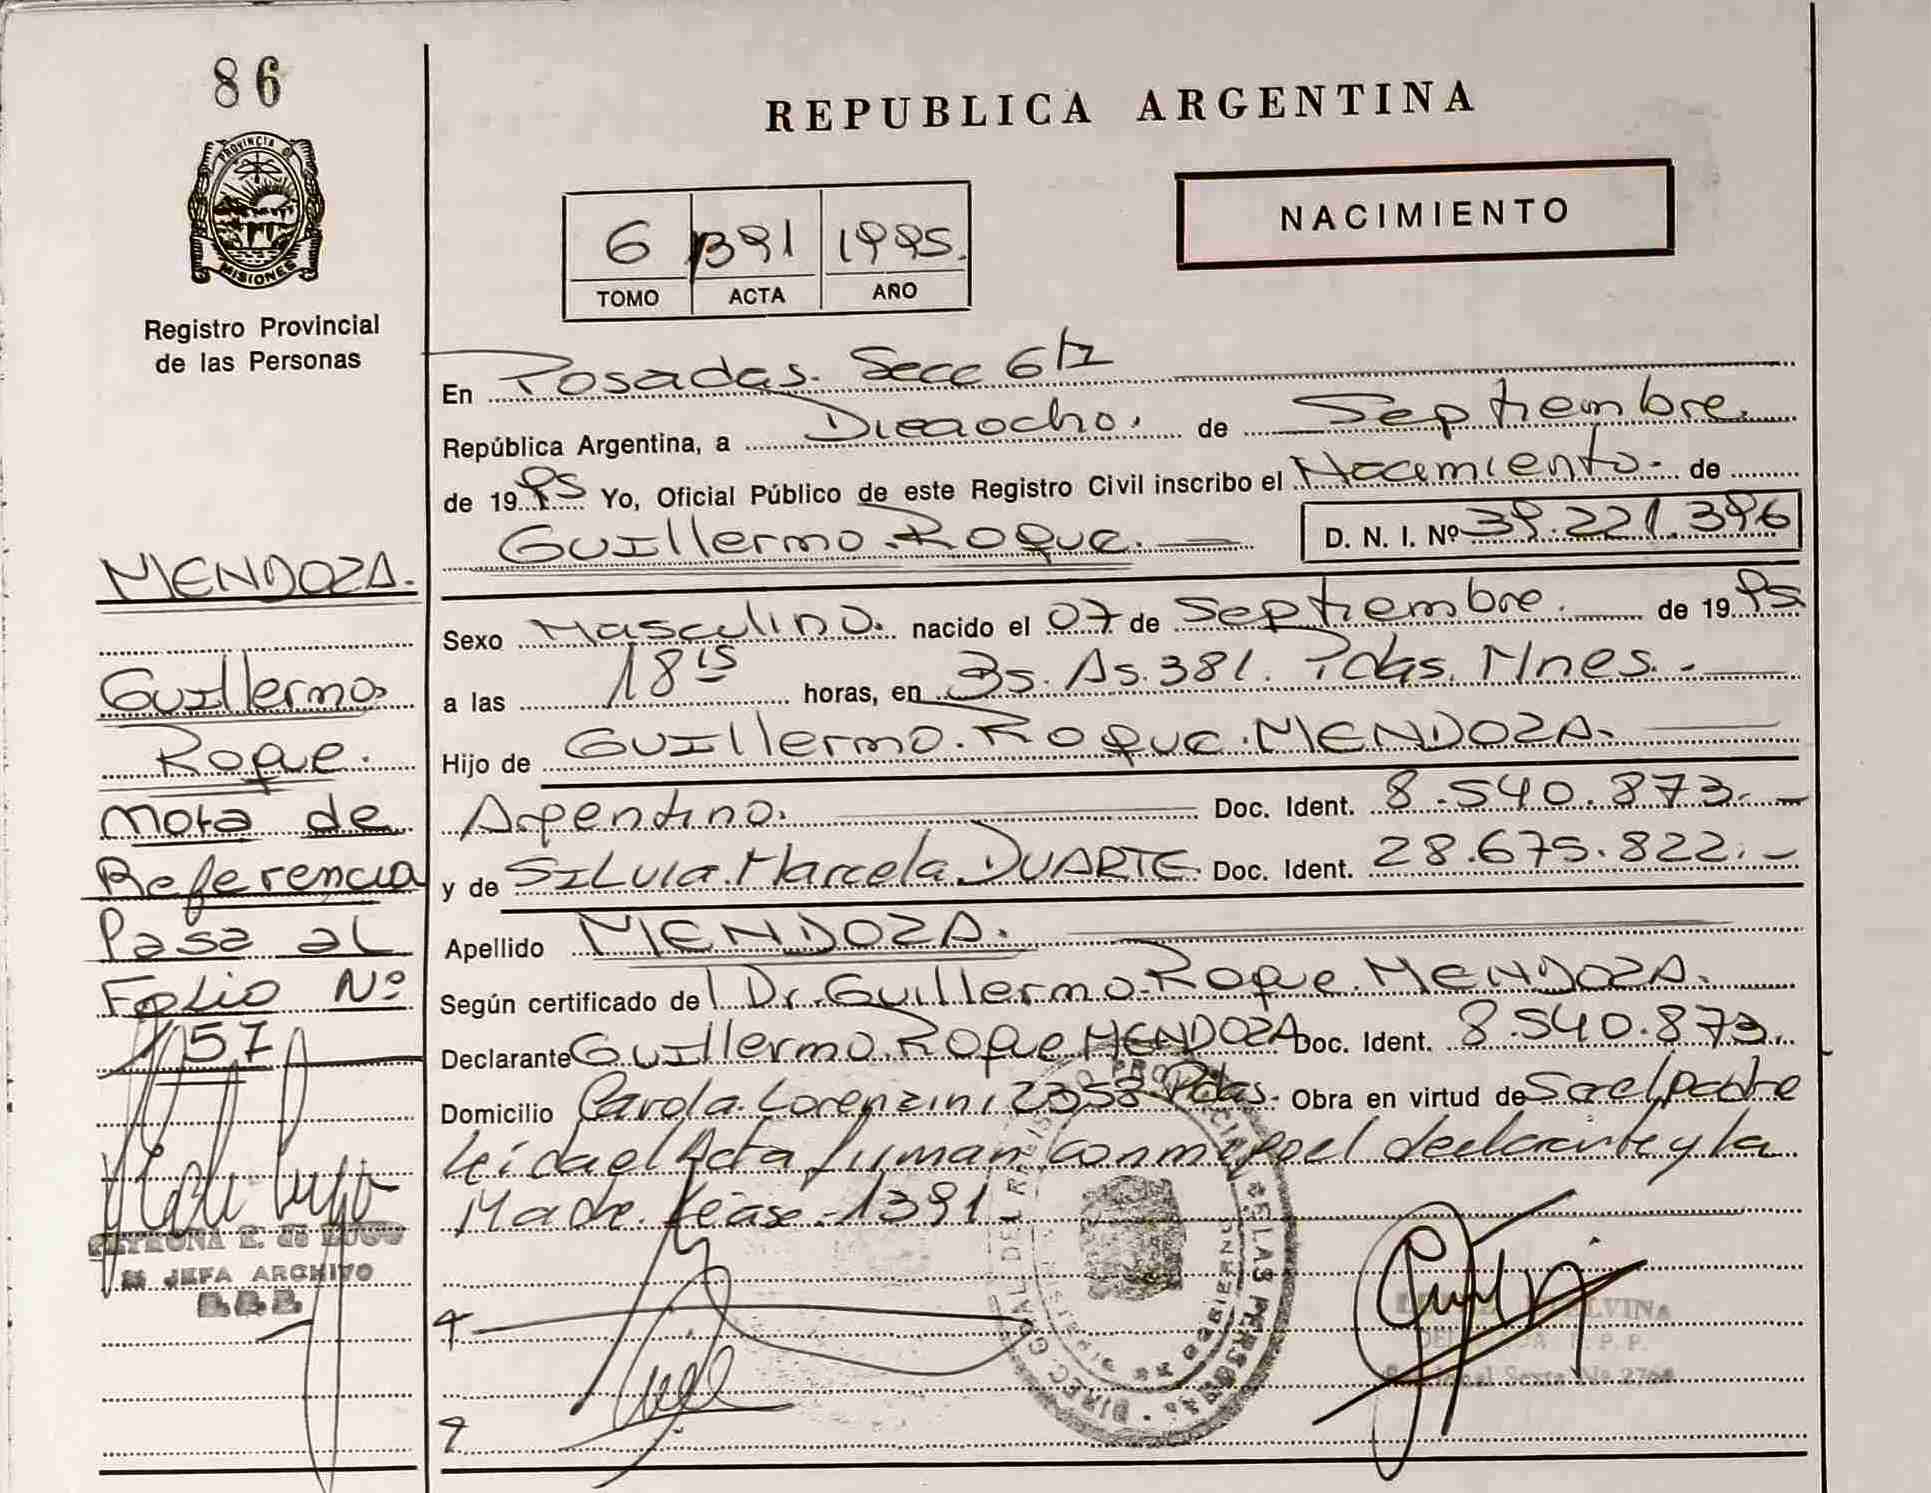 86
PROVINCIA D
MISIONES
Registro Provincial
de las Personas
MENDOZA.
Guillermo
Roque.
Nota de
Referencia
Pasa al
Folio Nº
157
JEFA ARCHIVO
REPUBLICA ARGENTINA
NACIMIENTO
6 1391 1995.
TOMO ACTA AÑO
En Posadas. Secc 6ta
República Argentina, a Dieciocho. de Septiembre.
de 1995 Yo, Oficial Público de este Registro Civil inscribo el Nacimiento. de
Guillermo. Roque. D. N. I. Nº 39.221.396
Sexo Masculino. nacido el 07 de Septiembre. de 1995
a las 18 15 horas, en Bs. As. 381. Pdas. Mnes.
Hijo de Guillermo. Roque. MENDOZA.
Argentino. Doc. Ident. 8.540.873.
y de Silvia. Marcela. DUARTE Doc. Ident. 28.675.822.
Apellido MENDOZA.
Según certificado del Dr. Guillermo. Roque. MENDOZA.
Declarante Guillermo. Roque MENDOZA Doc. Ident. 8.540.873.
Domicilio Carola. Lorenzini, 2358 Pdas. Obra en virtud de Ser el padre
Leída el Acta firman conmigo el declarante y la
Madre. Léase. 1391
DIREC. GRAL DEL REGISTRO PROVINCIAL DE LAS PERSONAS